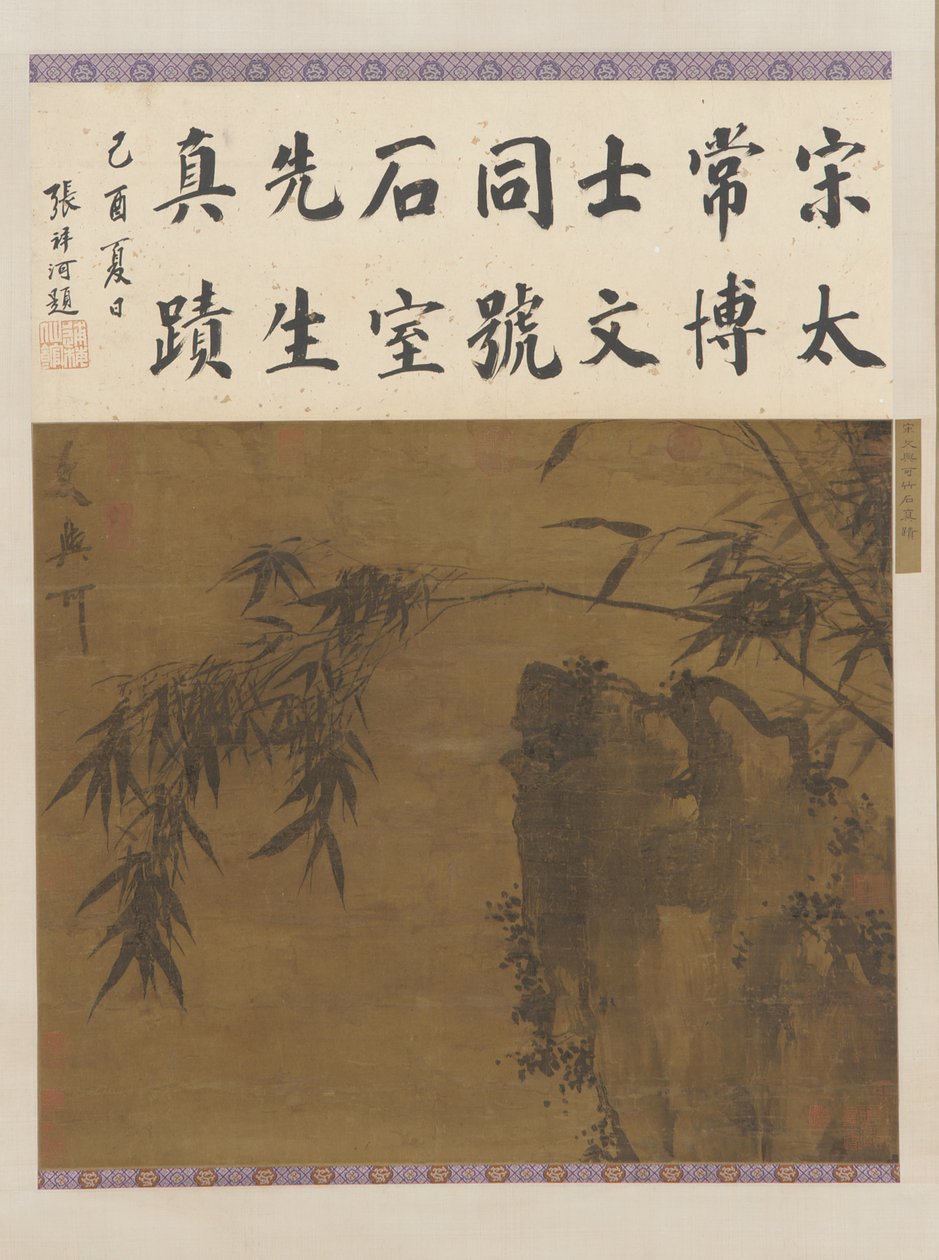 宋太
常博
士文
同號
石室
先生
真蹟
己酉夏日
張祥河題
宋文與可竹石真蹟
文與可